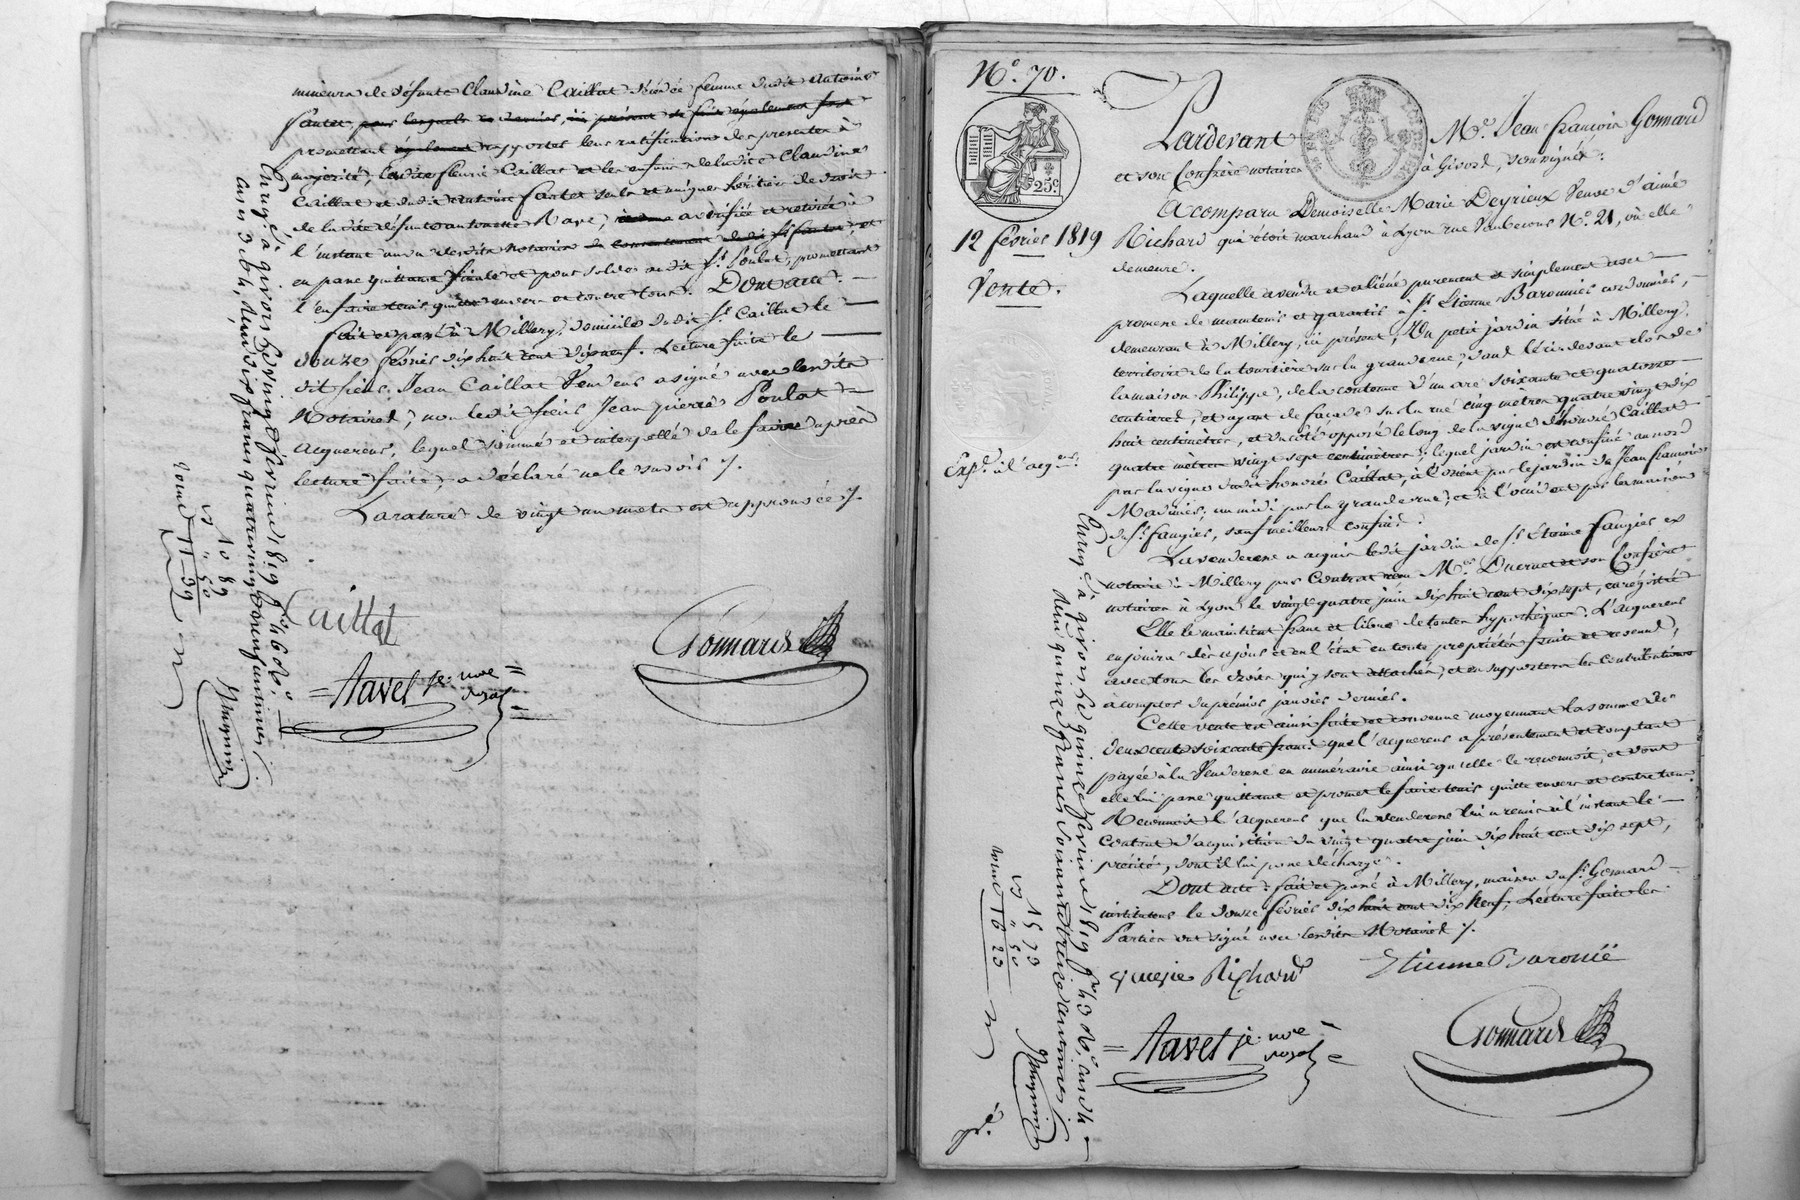 mineurs de défunte Claudine Caillat décédée femme dudit Antoine
fantet, pour lesquels ce dernier, ici présent se fait également fort
promettant également rapporter leur ratification des présentes à
majorité, ladite fleurie Caillat et les enfans de ladite Claudine
Caillat et dudit Antoine fantet seuls et uniques héritiers de droit
de ladite défunte antoinette Rave, a vérifiée et retirée à
l'instant au vu desdits notaires du consentement dudit Sr fantet, et
en passe quittance finale et pour solde audit Sr Poulat, promettant
l'en faire tenir quitte envers et contre tous. Dont acte.
fait et passé à Millery, domicile dudit Sr Caillat le
douze février dix huit cent dix neuf. Lecture faite le
dit sieur Jean Caillat Vendeur a signé avec lesdits
Notaires, non ledit sieur Jean pierre Poulat
acquéreur, lequel sommé et interpellé de le faire après
lecture faite, a déclaré ne le savoir /.
La rature de vingt un mots est approuvée /.
Caillat
Gonnard
= Navel je. nre =
Enregé. à givors le vingt février 1819
N°. 70.
25c
12 février 1819
Vente.
Expé. à l'acqeur.
Pardevant Me. Jean-françois Gonnard
et son Confrère notaires à Givord, soussignés:
A comparu Demoiselle Marie Deyrieux Veuve d'aimé
Richard qui étoit marchand à Lyon rue Vaubecour N°. 21, où elle
demeure.
Laquelle a vendu et aliéné purement et simplement avec
promesse de maintenir et garantir à Sr. Etienne Baronnier cordonnier,
demeurant à Millery, ici présent, Un petit jardin situé à Millery,
territoire de la tourtière sur la grande rue, dans le ci devant clos de
la maison Philippe, de la contenue d'un are soixante et quatorze
centiares, et ayant de façade sur la rue cinq mètres quatre vingt dix
huit centimètres, et du côté opposé le long de la vigne d'honoré Caillat
quatre mètres vingt sept centimètres; lequel jardin est confiné au nord
par la vigne dudit honoré Caillat, à l'orient par le jardin de Jean françois
au midi par la grande rue, et à l'occident par la maison
du Sr. faugier, sauf meilleurs confins.
La venderesse a acquis ledit jardin de Sr. Etienne faugier ex
notaire à Millery par Contrat reçu Me. Ducruet et son Confrère
notaires à Lyon le vingt quatre juin dix huit cent dix sept, enregistré
Elle le maintient franc et libre de toutes hypothèques. L'acquéreur
en jouira dès ce jour et en l'état en toute propriété fruits et revenus,
avec tous les droits qui y sont attachés, et en supportera les contributions
à compter du premier janvier dernier.
Cette vente est ainsi faite et convenue moyennant la somme de
deux cents soixante francs que l'acquéreur a présentement et comptant
payée à la Venderesse en numéraire ainsi qu'elle le reconnoit, et dont
elle lui passe quittance et promet le faire tenir quitte envers et contre tous.
Reconnoit l'acquéreur que la venderesse lui a remis à l'instant le
Contrat d'acquisition du vingt quatre juin dix huit cent dix sept,
précité, dont il lui passe décharge.
Dont acte: fait et passé à Millery, maison du Sr. Gonnard
instituteur le douze février dix huit cent dix neuf, Lecture faite les
Parties ont signé avec lesdits Notaires /.
Richard
Etienne Baronié
= Navel je. nre
Gonnard
Enregé. à givors le quinze février 1819